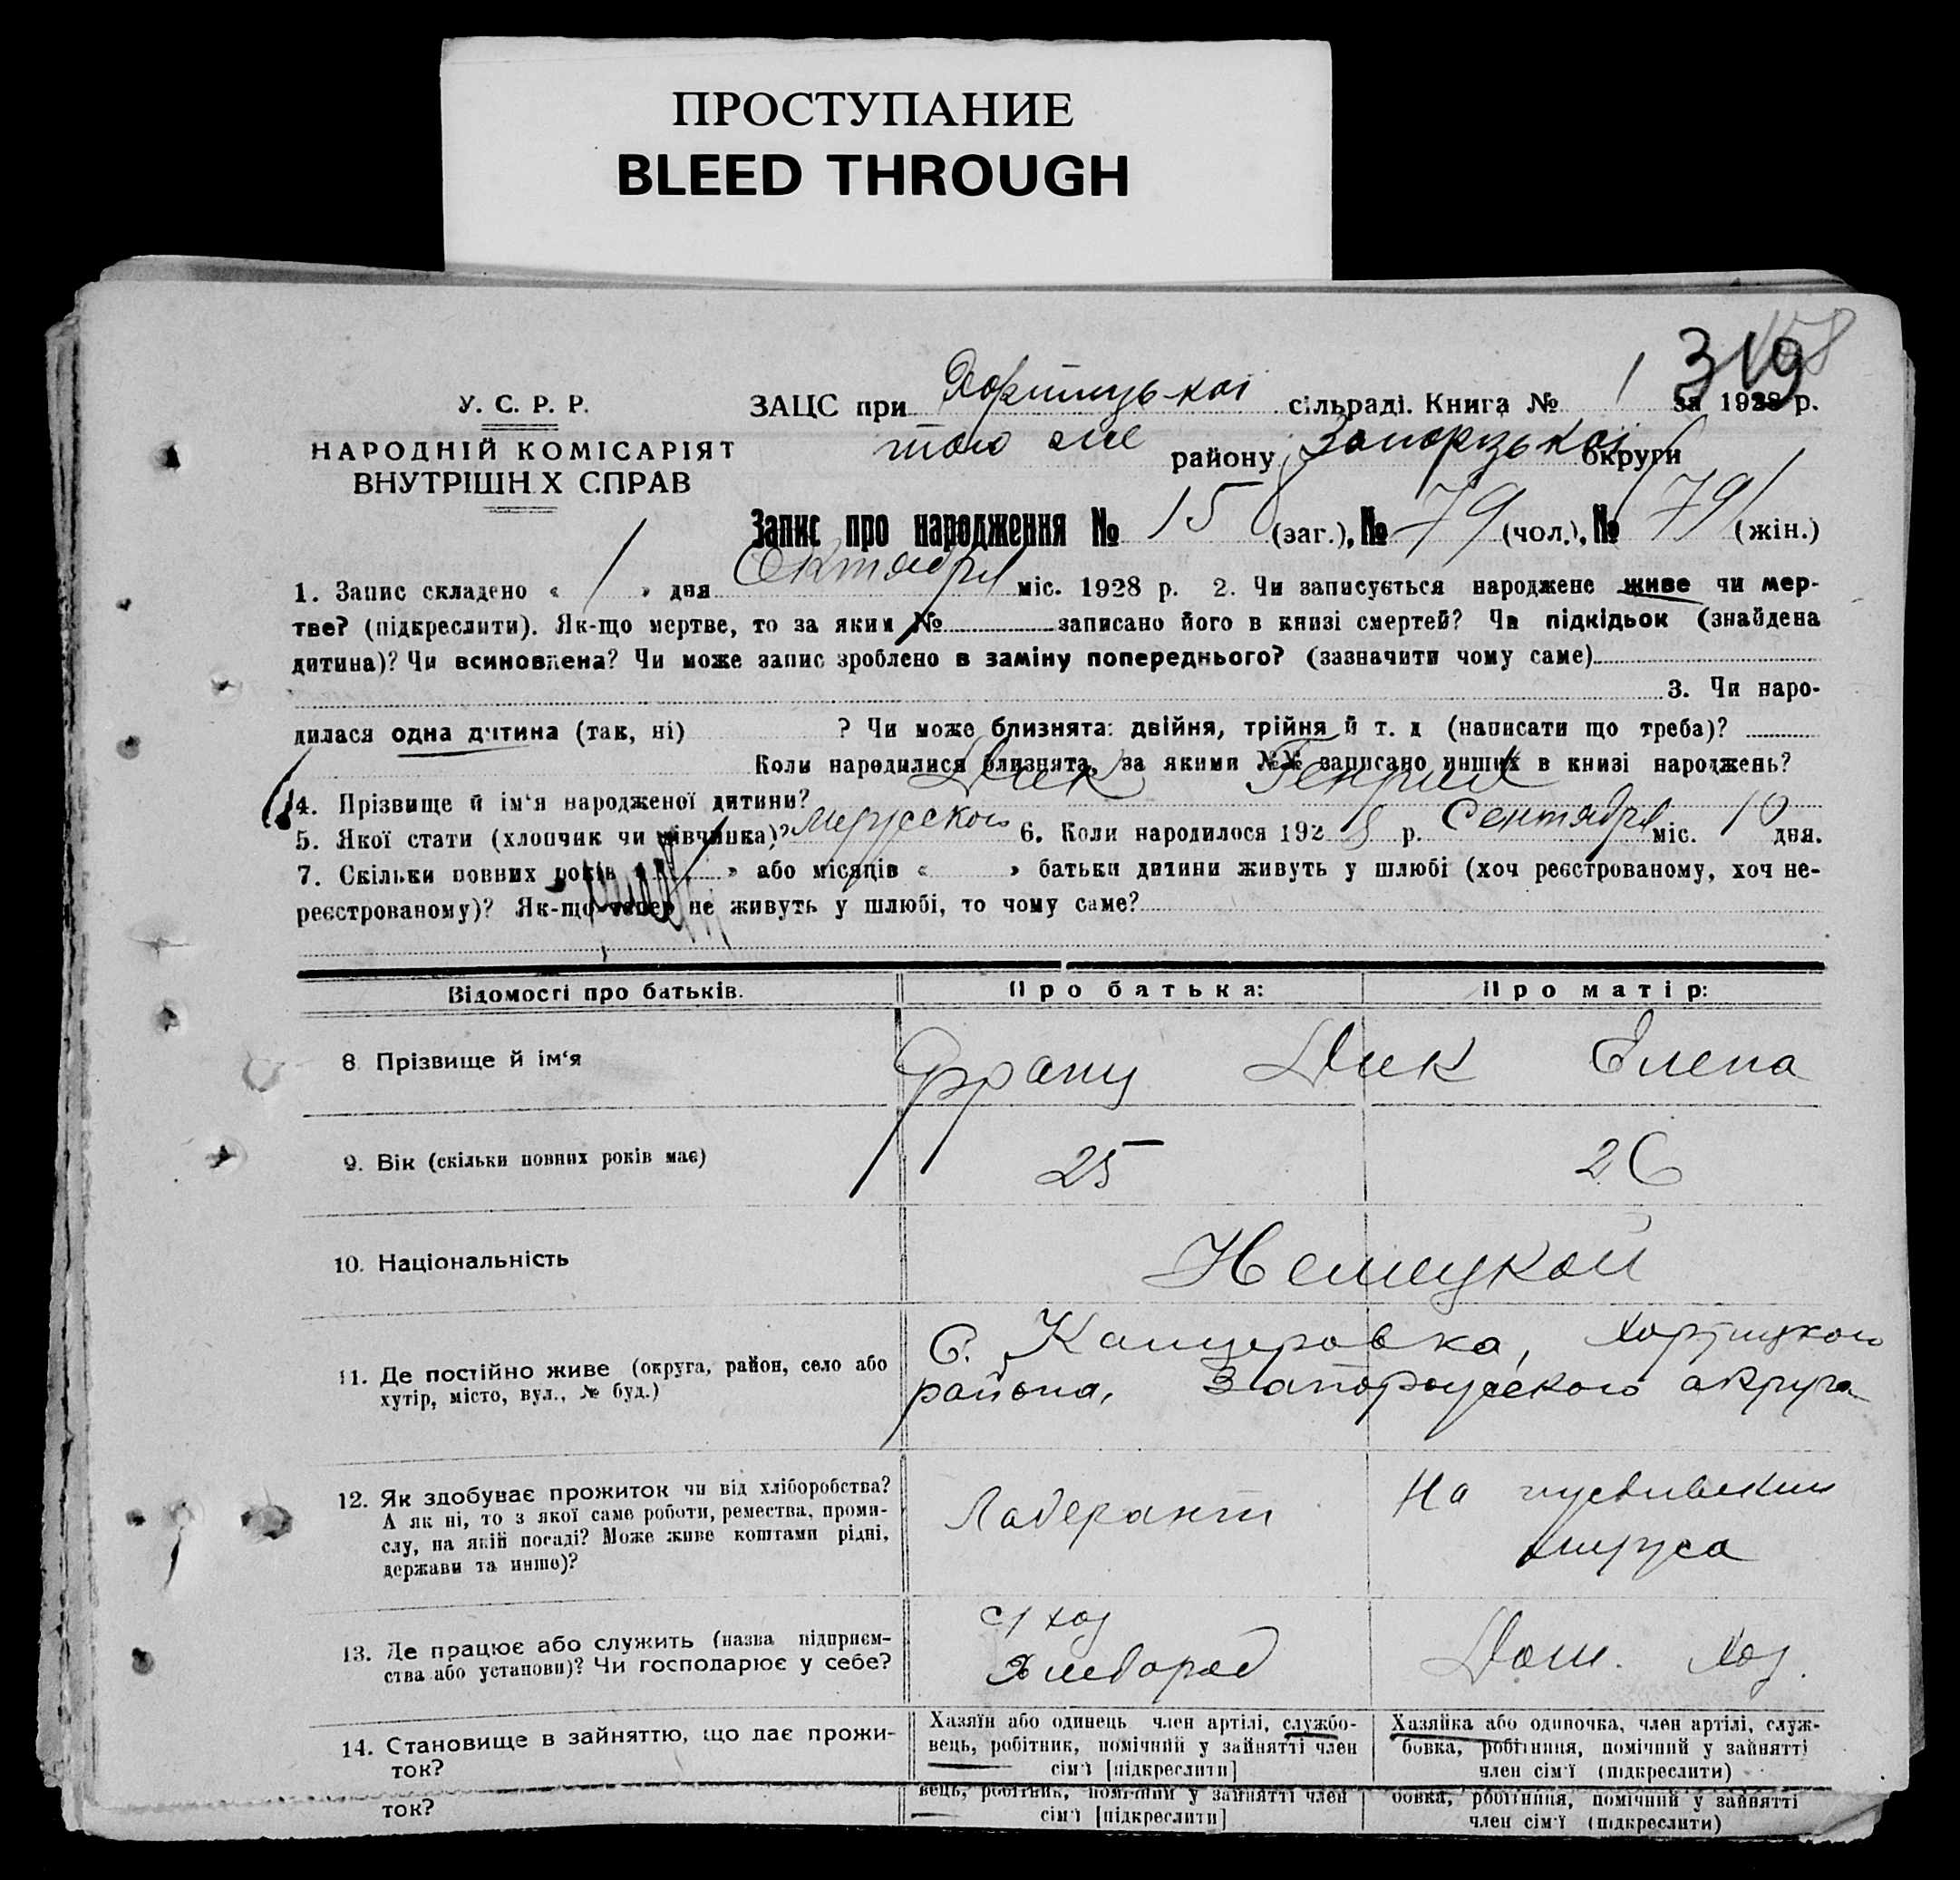 ПРОСТУПАНИЕ
BLEED THROUGH
319
158
У. С. Р. Р.
НАРОДНІЙ КОМІСАРІЯТ
ВНУТРІШН Х СПРАВ
ЗАЦС при Хортицькоі сільраді. Книга № 1 за 1928 р.
того же району Запорізькоі округи
Запис про народження № 158 (заг.), № 79 (чол.), № 79 (жін.)
1. Запис складено « 1 » дня Октября міс. 1928 р. 2. Чи записується народжене живе чи мер-
тве? (підкреслити). Як-що мертве, то за яким № записано його в книзі смертей? Чи підкідьок (знайдена
дитина)? Чи всиновлена? Чи може запис зроблено в заміну попереднього? (зазначити чому саме)
3. Чи наро-
дилася одна дитина (так, ні) ? Чи може близнята: двійня, трійня й т. д (написати що треба)?
Коли народилися близнята, за якими №№ записано инших в книзі народжень?
4. Прізвище й ім'я народженої дитини? Дик Генрих
5. Якої стати (хлопчик чи дівчинка)? мужского 6. Коли народилося 1928 р. Сентября міс. 10 дня.
7. Скільки повних років « » або місяців « » батьки дитини живуть у шлюбі (хоч реєстрованому, хоч не-
реєстрованому)? Як-що тепер не живуть у шлюбі, то чому саме?
Відомості про батьків. Про батька: Про матір:
8. Прізвище й ім'я Франц Дик Елена
9. Вік (скільки повних років має) 25 26
10. Національність Немецкой
11. Де постійно живе (округа, район, село або
хутір, місто, вул., № буд.)
С. Канцеровка, Хортицкого
района, Запорожского округа
12. Як здобуває прожиток чи від хліборобства?
А як ні, то з якої саме роботи, ремества, проми-
слу, на якій посаді? Може живе коштами рідні,
держави та инше)?
Лаберант
На иждивении
мужа
13. Де працює або служить (назва підприєм-
ства або установи)? Чи господарює у себе?
с/хоз
Хлебороб
Дом. хоз.
14. Становище в зайняттю, що дає прожи-
ток?
Хазяїн або одинець член артілі, службо-
вець, робітник, помічний у зайнятті член
сім'ї [підкреслити]
Хазяйка або одиночка, член артілі, служ-
бовка, робітниця, помічний у зайнятті
член сім'ї (підкреслити)
ток?
вець, робітник, помічний у зайнятті член
сім'ї [підкреслити]
бовка, робітниця, помічний у зайнятті
член сім'ї (підкреслити)